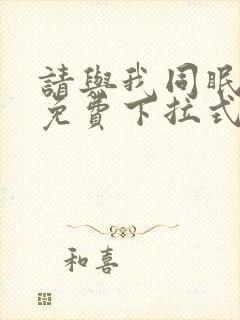 請與我同眠
免費下拉式
和喜